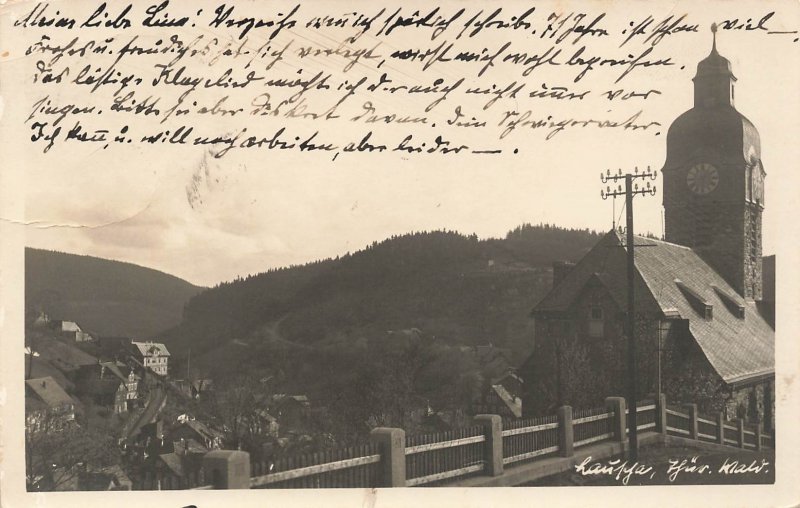 Meine liebe Lina! Verzeihe, wenn ich spät ich schreibe. 71 Jahre ist schon viel —
Frohes u. freudiges hat sich verlegt, wirst mich wohl begreifen.
das lästige Klagelied möcht ich Dir auch nicht immer vor
singen. Bitte sei aber des Kort davon. dein Schwiegervater.
Ich kann, u. will noch arbeiten, aber leider — .
Lauscha, Thür. Wald.